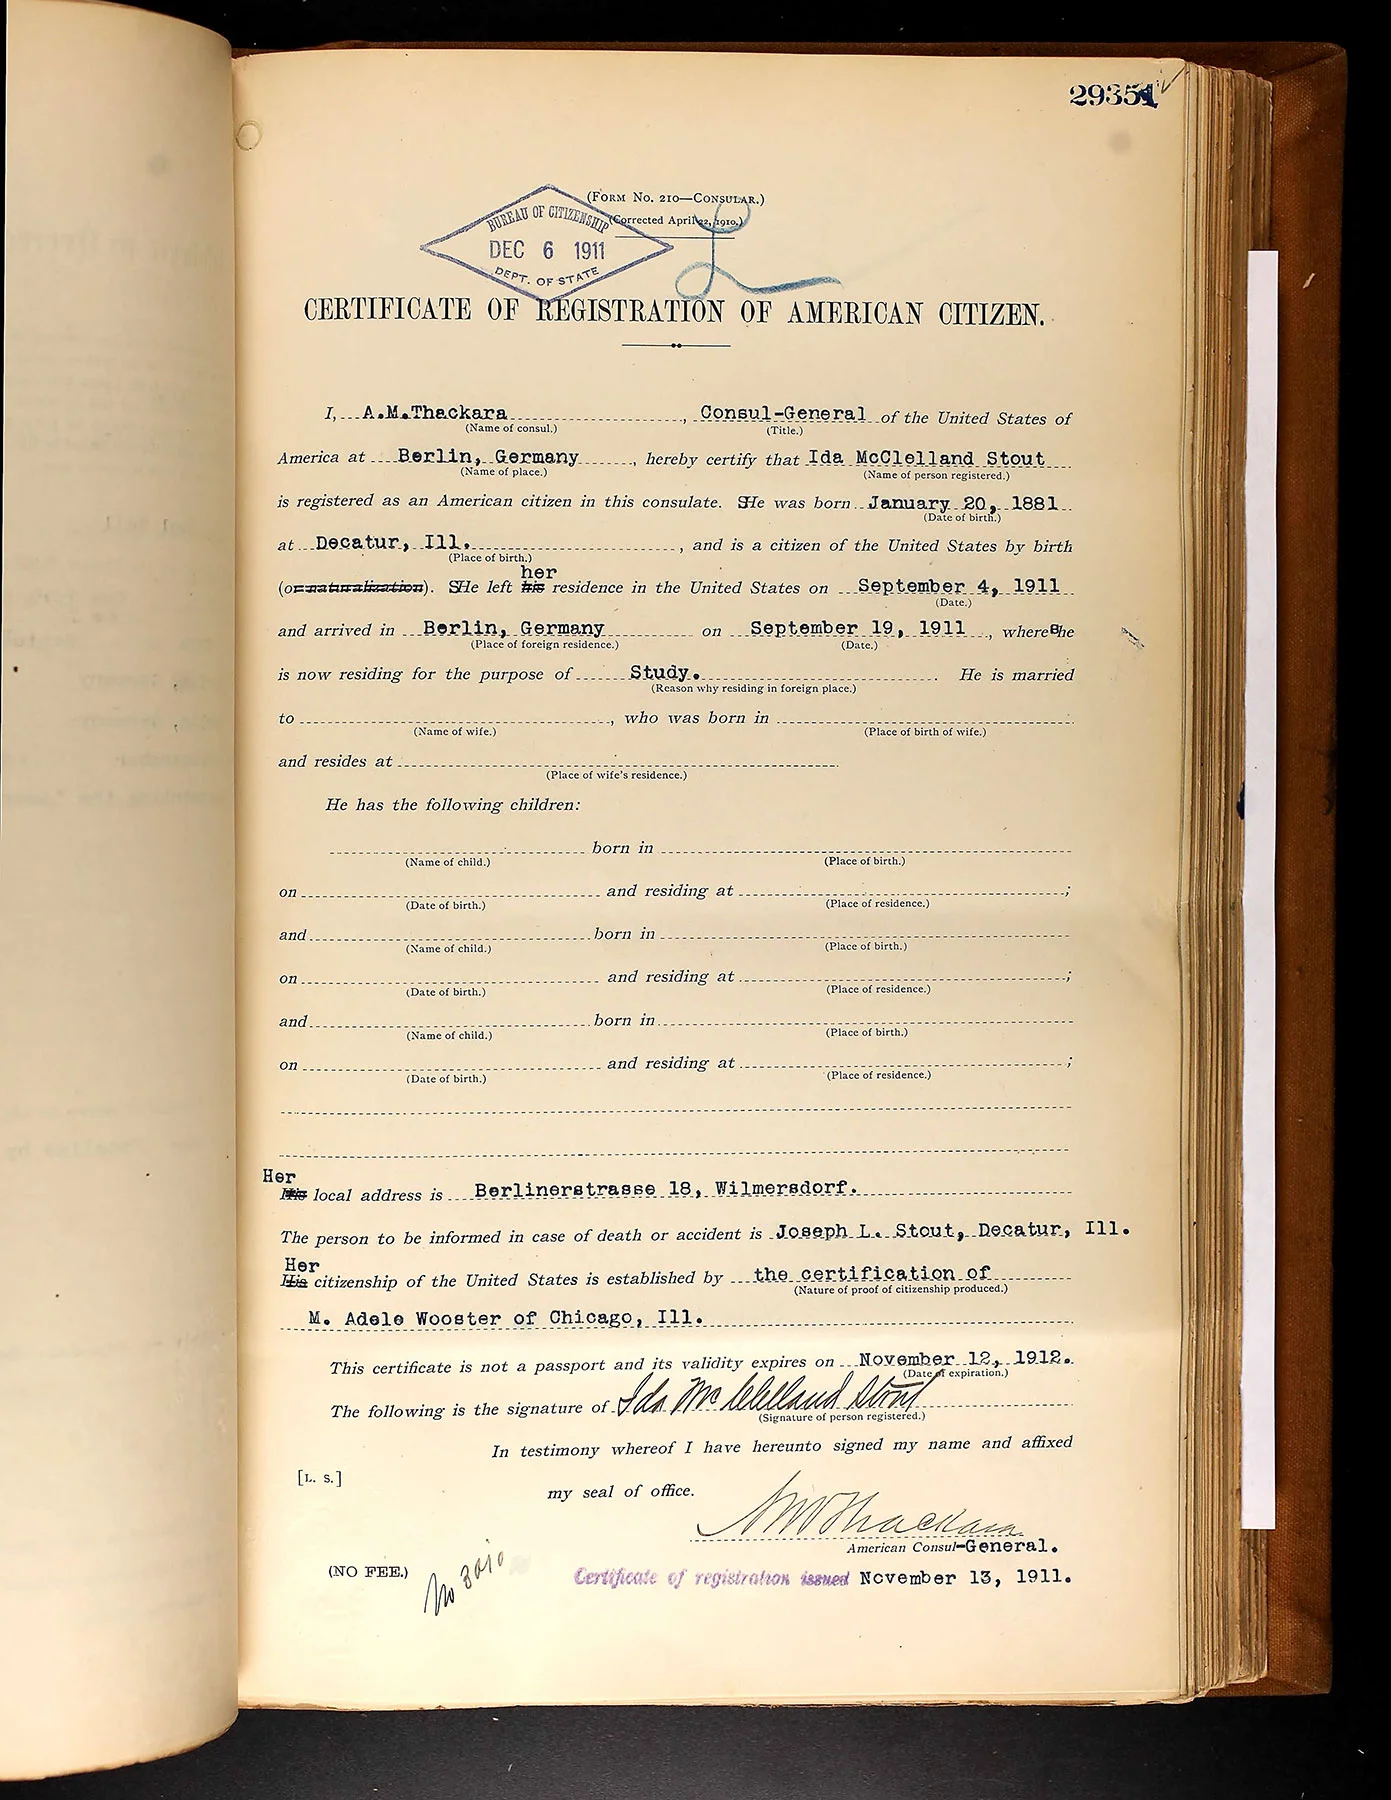 29351
(FORM NO. 210—CONSULAR.)
(Corrected April 22, 1910.)
BUREAU OF CITIZENSHIP
DEC 6 1911
DEPT. OF STATE
CERTIFICATE OF REGISTRATION OF AMERICAN CITIZEN.
I, A.M.Thackara, Consul-General of the United States of
(Name of consul.) (Title.)
America at Berlin, Germany, hereby certify that Ida McClelland Stout
(Name of place.) (Name of person registered.)
is registered as an American citizen in this consulate. SHe was born January 20, 1881
(Date of birth.)
at Decatur, Ill., and is a citizen of the United States by birth
(Place of birth.)
her
(or naturalization). SHe left his residence in the United States on September 4, 1911
(Date.)
and arrived in Berlin, Germany on September 19, 1911, where she
(Place of foreign residence.) (Date.)
is now residing for the purpose of Study. He is married
(Reason why residing in foreign place.)
to , who was born in
(Name of wife.) (Place of birth of wife.)
and resides at
(Place of wife's residence.)
He has the following children:
born in
(Name of child.) (Place of birth.)
on and residing at ;
(Date of birth.) (Place of residence.)
and born in
(Name of child.) (Place of birth.)
on and residing at ;
(Date of birth.) (Place of residence.)
and born in
(Name of child.) (Place of birth.)
on and residing at ;
(Date of birth.) (Place of residence.)
Her
His local address is Berlinerstrasse 18, Wilmersdorf.
The person to be informed in case of death or accident is Joseph L. Stout, Decatur, Ill.
Her
His citizenship of the United States is established by the certification of
(Nature of proof of citizenship produced.)
M. Adele Wooster of Chicago, Ill.
This certificate is not a passport and its validity expires on November 12, 1912.
(Date of expiration.)
The following is the signature of Ida McClelland Stout
(Signature of person registered.)
In testimony whereof I have hereunto signed my name and affixed
[L. S.]
my seal of office.
AMThackara
American Consul-General.
(NO FEE.)
No 3010
Certificate of registration issued November 13, 1911.